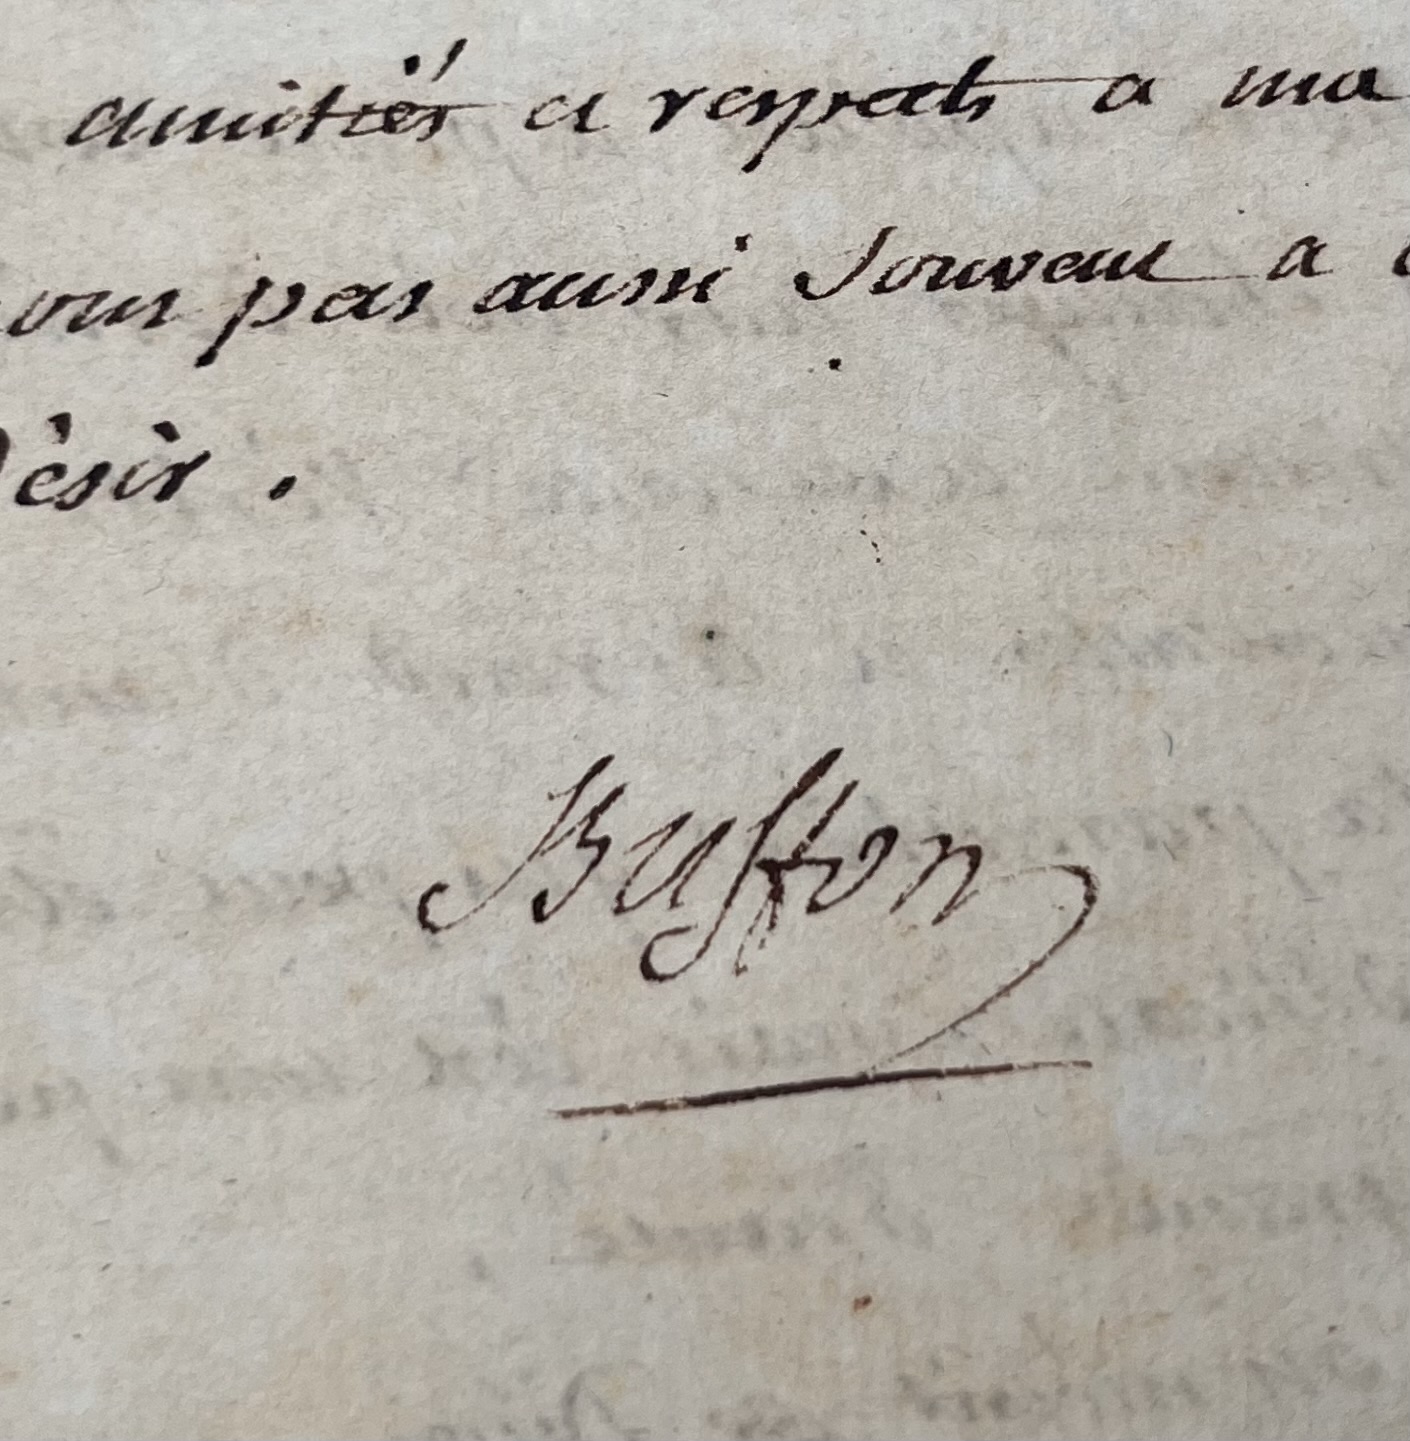 amitiés et respects a ma
vous pas aussi souvent a
désir .
Buffon